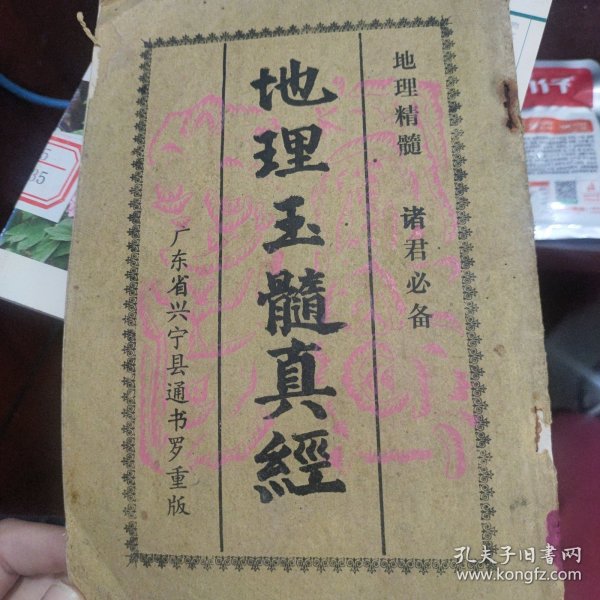 地理精髓 诸君必备
地理玉髓真經
广东省兴宁县通书罗重版
35
孔夫子旧书网
www.kongfz.com